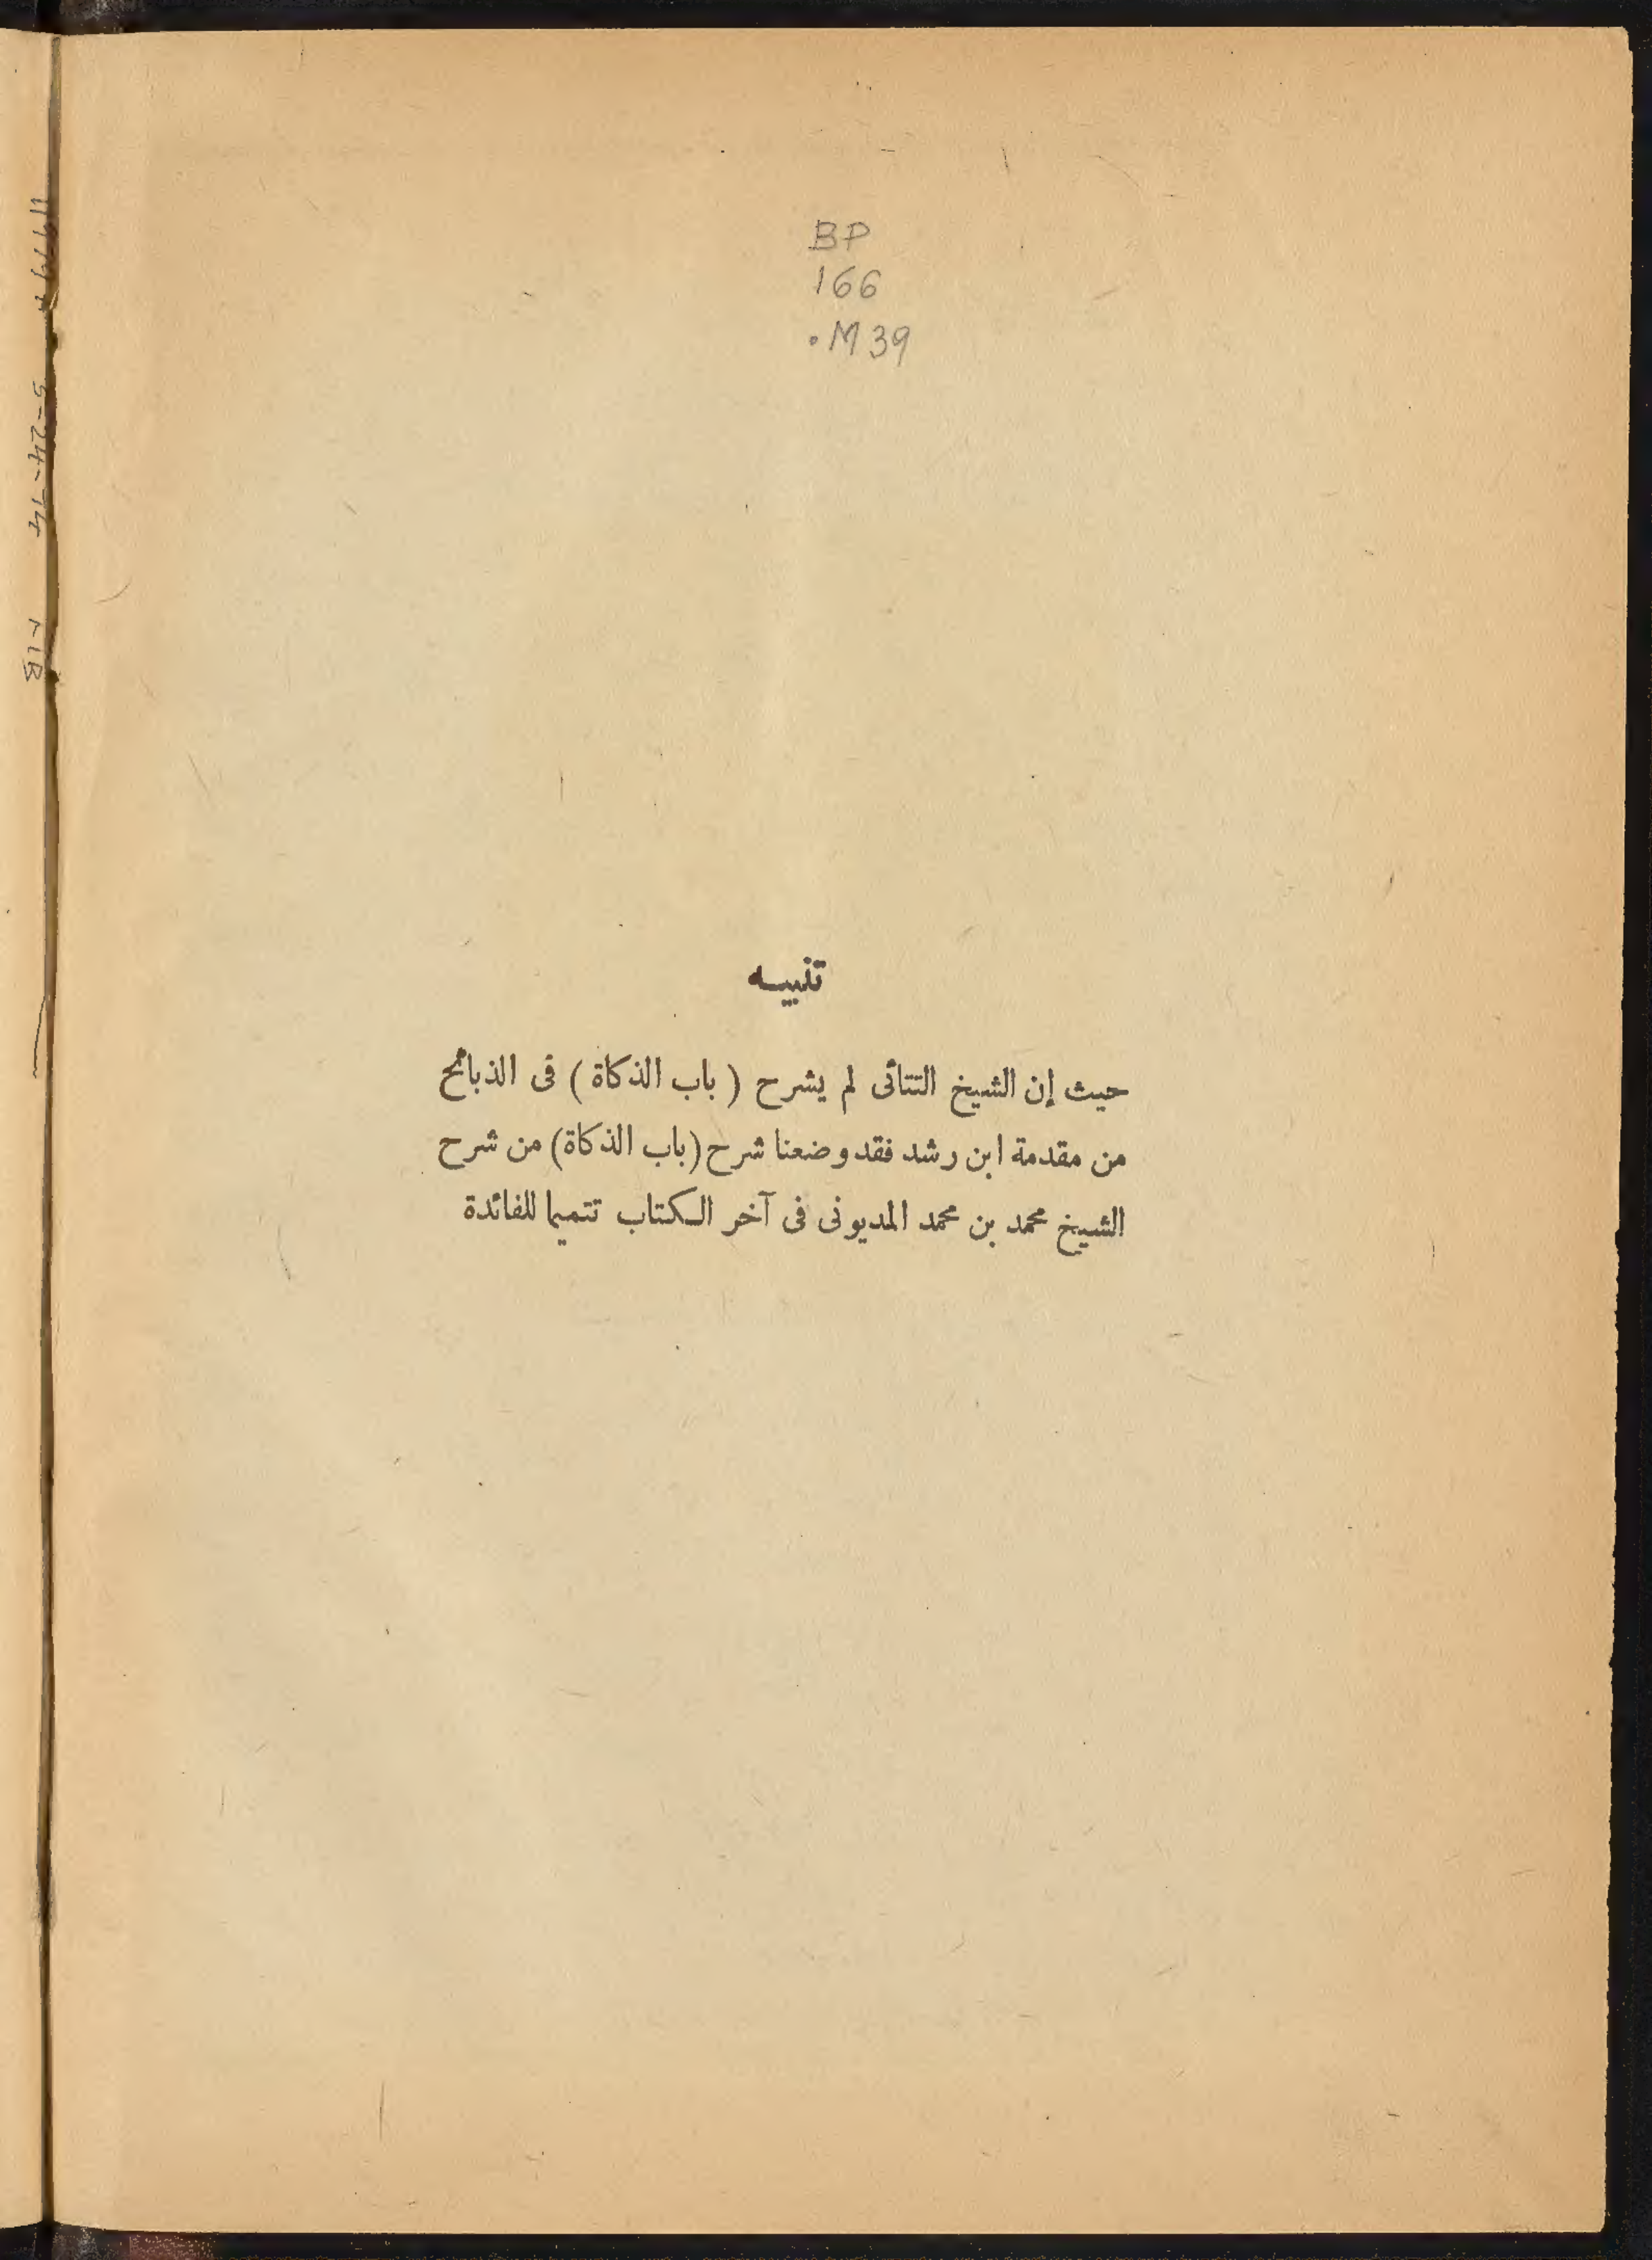 BP
166
.M39
تنبيه
حيث إن الشيخ التتائى لم يشرح ( باب الذكاة ) فى الذبائح
من مقدمة ابن رشد فقد وضعنا شرح (باب الذكاة) من شرح
الشيخ محمد بن محمد المديونى فى آخر الكتاب تتميما للفائدة
5-24-74